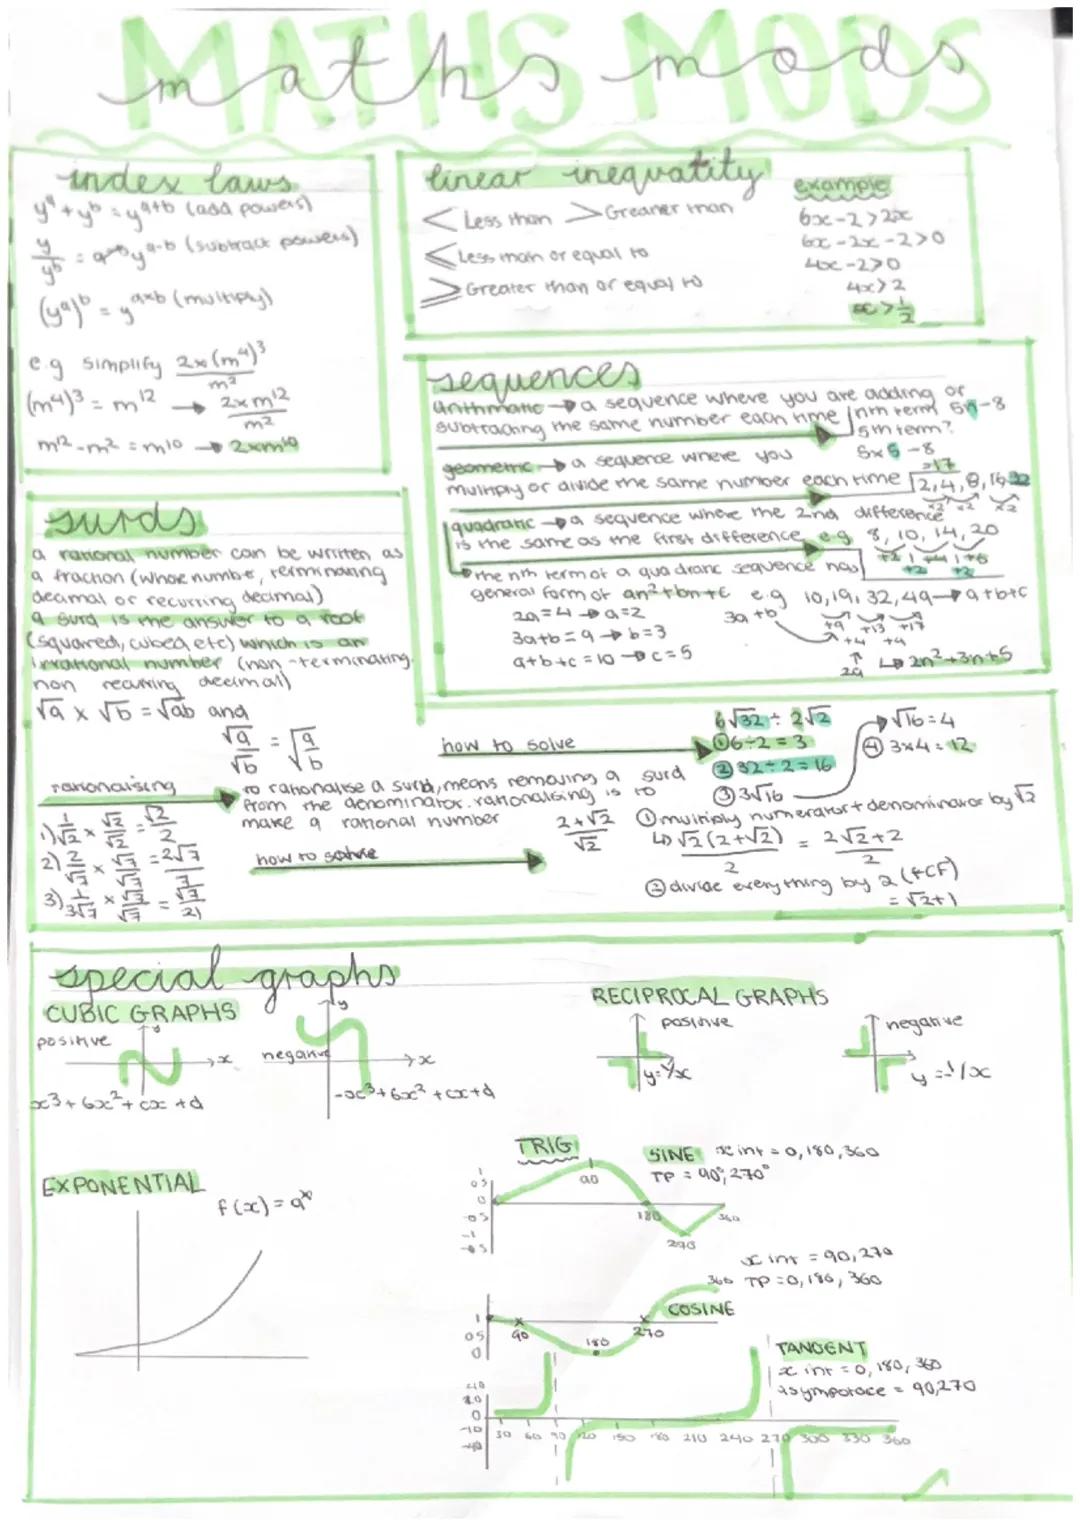 MATHS MODS
maths mods
index laws
yᵃ + yᵇ = yᵃ⁺ᵇ (add powers)
y/yᵇ = yᵃ⁻ᵇ (subtract powers)
(yᵃ)ᵇ = yᵃˣᵇ (multiply)
e.g simplify 2×(m⁴)³/m²
(m⁴)³ = m¹² → 2×m¹²/m²
m¹² - m² = m¹⁰ → 2×m¹⁰
linear inequality
< Less than > Greater than
≤ Less than or equal to
≥ Greater than or equal to
example
6x-2>2x
6x-2x-2>0
4x-2>0
4x>2
x>1/2
sequences
arithmatic → a sequence where you are adding or
subtracting the same number each time
nth term 5n-8
5th term?
5×5-8
=17
geometric → a sequence where you
multiply or divide the same number each time
2, 4, 8, 16, 32
×2 ×2 ×2
quadratic → a sequence where the 2nd difference
is the same as the first difference e.g 8, 10, 14, 20
+2 +4 +6
+2 +2
the nth term of a quadratic sequence has
general form of an²+bn+c e.g 10, 19, 32, 49 → a+b+c
2a=4 → a=2 3a+b +9 +13 +17
3a+b=9 → b=3 +4 +4
a+b+c=10 → c=5 2a → 2n²+3n+5
surds
a rational number can be written as
a fraction (whole number, terminating
decimal or recurring decimal)
a surd is the answer to a root
(squared, cubed etc) which is an
irrational number (non-terminating
non recurring decimal)
√a × √b = √ab and
√a/√b = √(a/b)
how to solve
6√32 ÷ 2√2
① 6÷2=3
② 32÷2=16
③ 3√16
√16=4
④ 3×4=12
rationalising
to rationalise a surd, means removing a surd
from the denominator. rationalising is to
make a rational number
1) 1/√2 × √2/√2 = √2/2
2) 2/√7 × √7/√7 = 2√7/7
3) 1/3√7 × √7/√7 = √7/21
how to solve
2+√2/√2
① multiply numerator + denominator by √2
↳ √2(2+√2)/2 = 2√2+2/2
② divide everything by 2 (FCF)
= √2+1
special graphs
CUBIC GRAPHS
positive
y
x
x³+bx²+cx+d
negative
y
x
-x³+bx²+cx+d
RECIPROCAL GRAPHS
positive
y=1/x
negative
y=-1/x
EXPONENTIAL
f(x)=aˣ
TRIG
SINE x int = 0, 180, 360
TP = 90°, 270°
1
0.5
0
-0.5
-1
90
180
270
360
x int = 90, 270
TP = 0, 180, 360
COSINE
1
0.5
0
90
180
270
360
TANGENT
x int = 0, 180, 360
asymptotae = 90, 270
0
-10
30 60 90 120 150 180 210 240 270 300 330 360